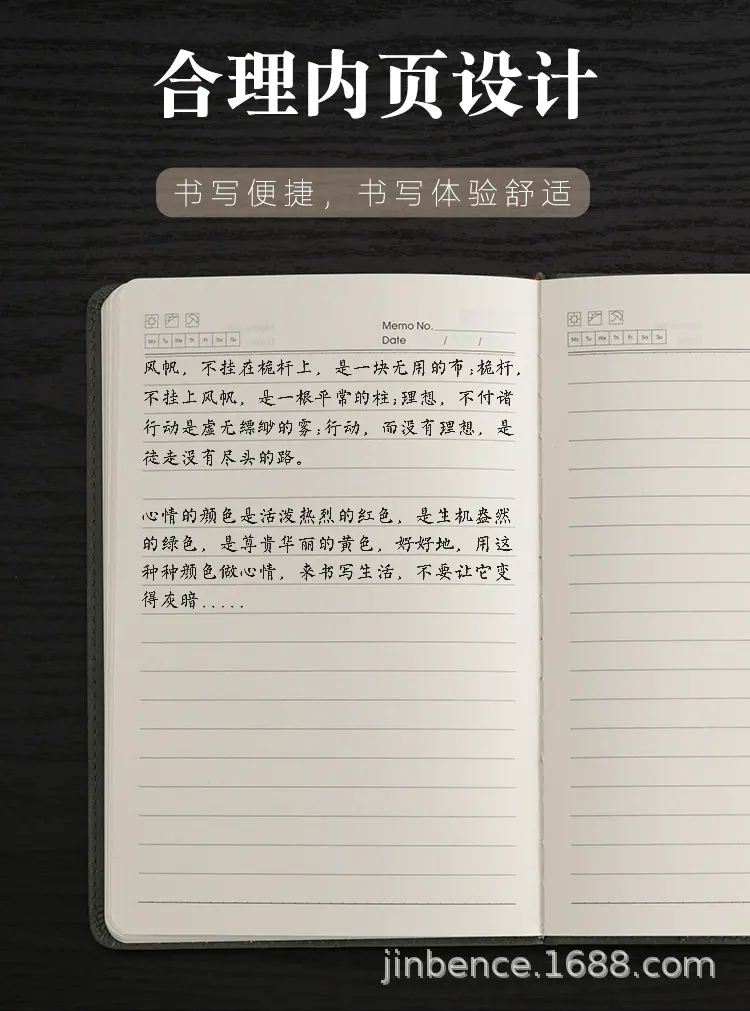 合理内页设计
书写便捷，书写体验舒适
Memo No.
Date / /
Mo Tu We Th Fr Sa Su
Mo Tu We Th Fr Sa Su
风帆，不挂在桅杆上，是一块无用的布;桅杆，
不挂上风帆，是一根平常的柱;理想，不付诸
行动是虚无缥缈的雾;行动，而没有理想，是
徒走没有尽头的路。
心情的颜色是活泼热烈的红色，是生机盎然
的绿色，是尊贵华丽的黄色，好好地，用这
种种颜色做心情，来书写生活，不要让它变
得灰暗.....
jinbence.1688.com